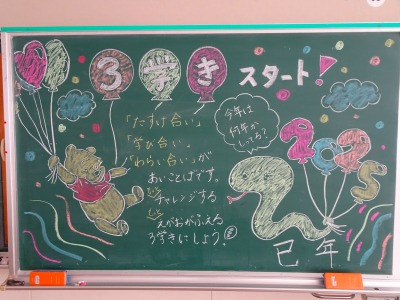 3学き スタート!
「たすけ合い」
「学び合い」
「わらい合い」が
あいことばです。
チャレンジする
えがおがふえる
3学きにしよう!
今年は
何年か
しってる?
2025
巳年